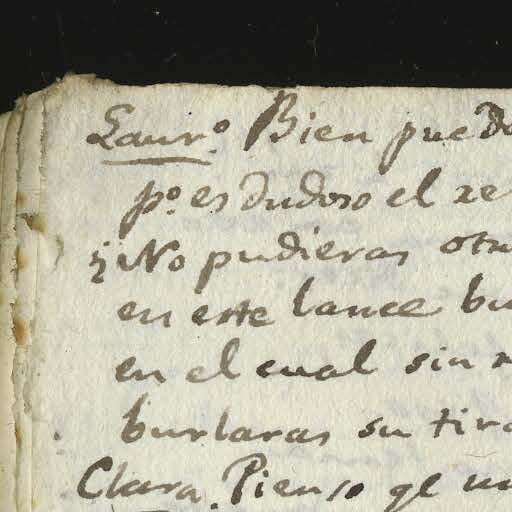 Laurº. Bien puedo
pº. es dudoso el re
¿No pudieras otr
en este lance bu
en el cual sin
burlaras su tira
Clara. Pienso qe